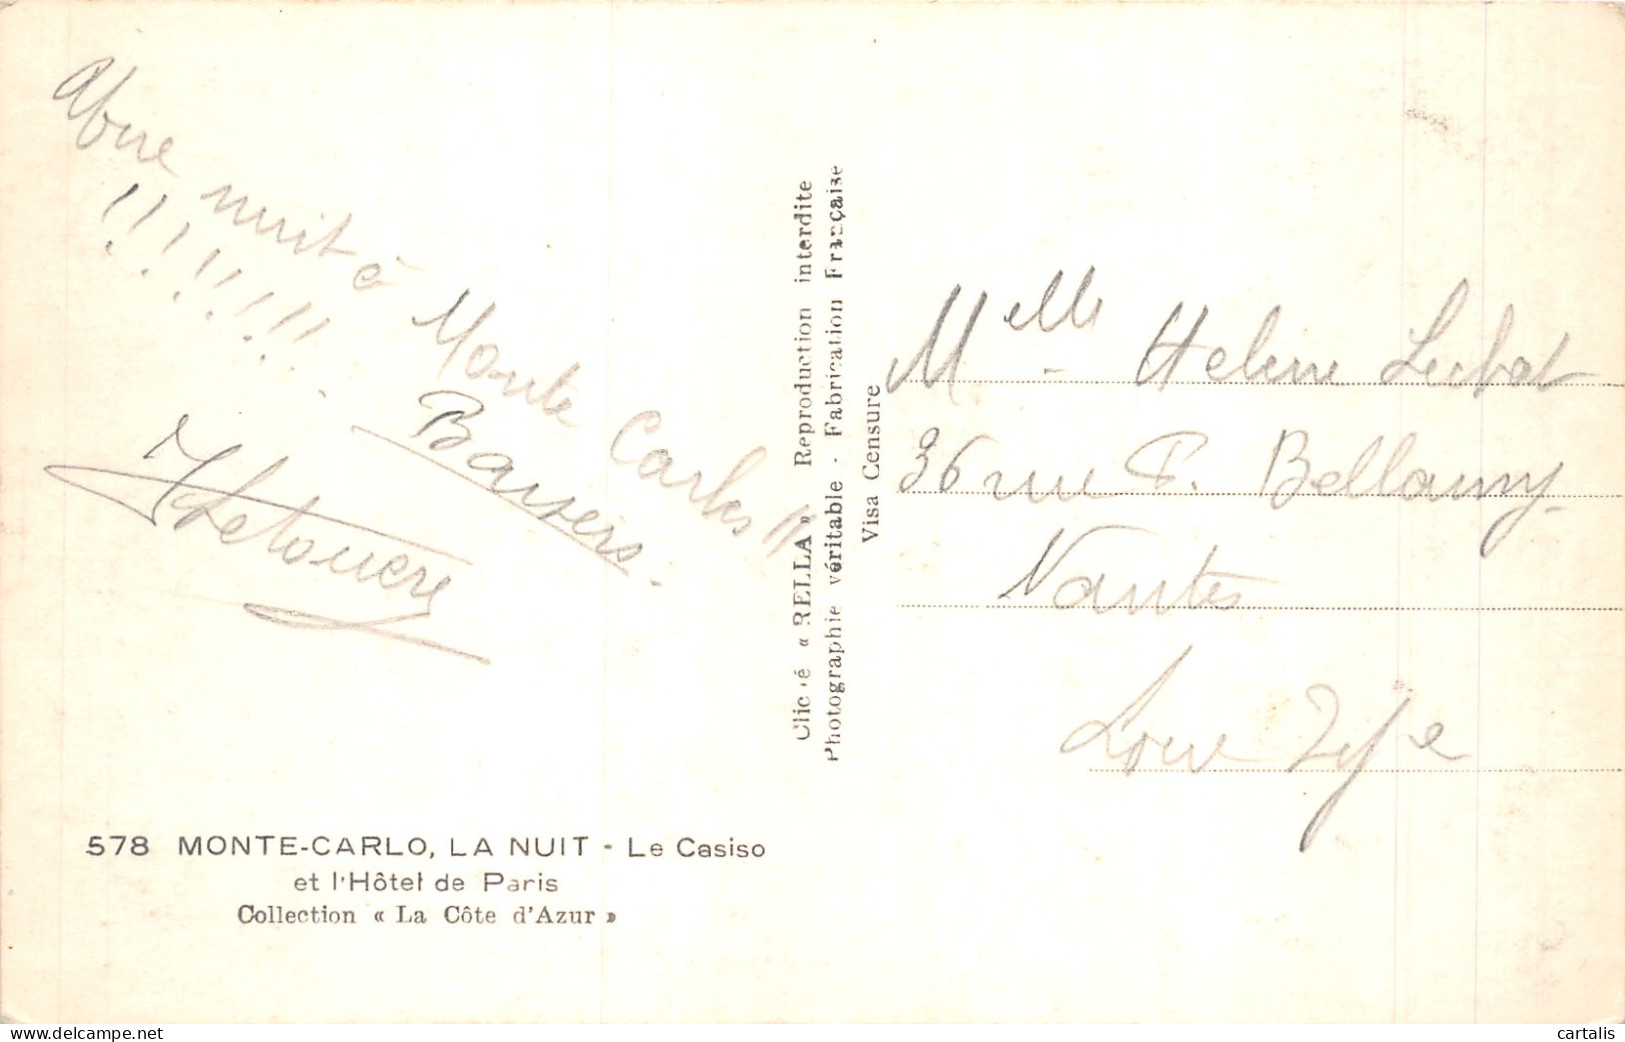 nuit à Monte Carlo !!
!!!!!!
Baisers.
Cliché « RELLA » Reproduction interdite
Photographie véritable - Fabrication Française
Visa Censure
Melle Helene
36 rue P. Bellamy
Nantes
Loire Infre
578 MONTE-CARLO, LA NUIT - Le Casiso
et l'Hôtel de Paris
Collection « La Côte d'Azur »
cartalis